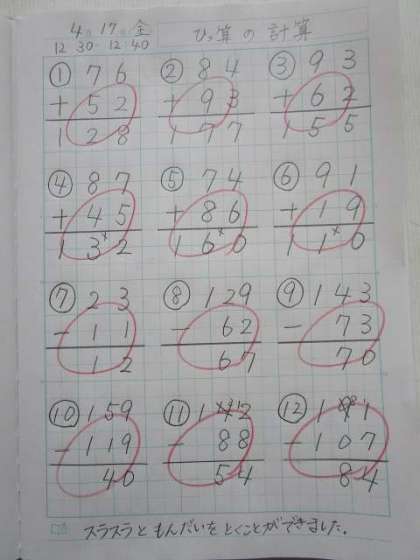 4月17日金
12:30~12:40 ひっ算の計算
① 76 ② 84 ③ 93
+52 +93 +62
128 177 155
④ 87 ⑤ 74 ⑥ 91
+45 +86 +19
132 160 110
⑦ 23 ⑧ 129 ⑨ 143
-11 -62 -73
12 67 70
⑩ 159 ⑪ 142 ⑫ 191
-119 -88 -107
40 54 84
スラスラともんだいをとくことができました。